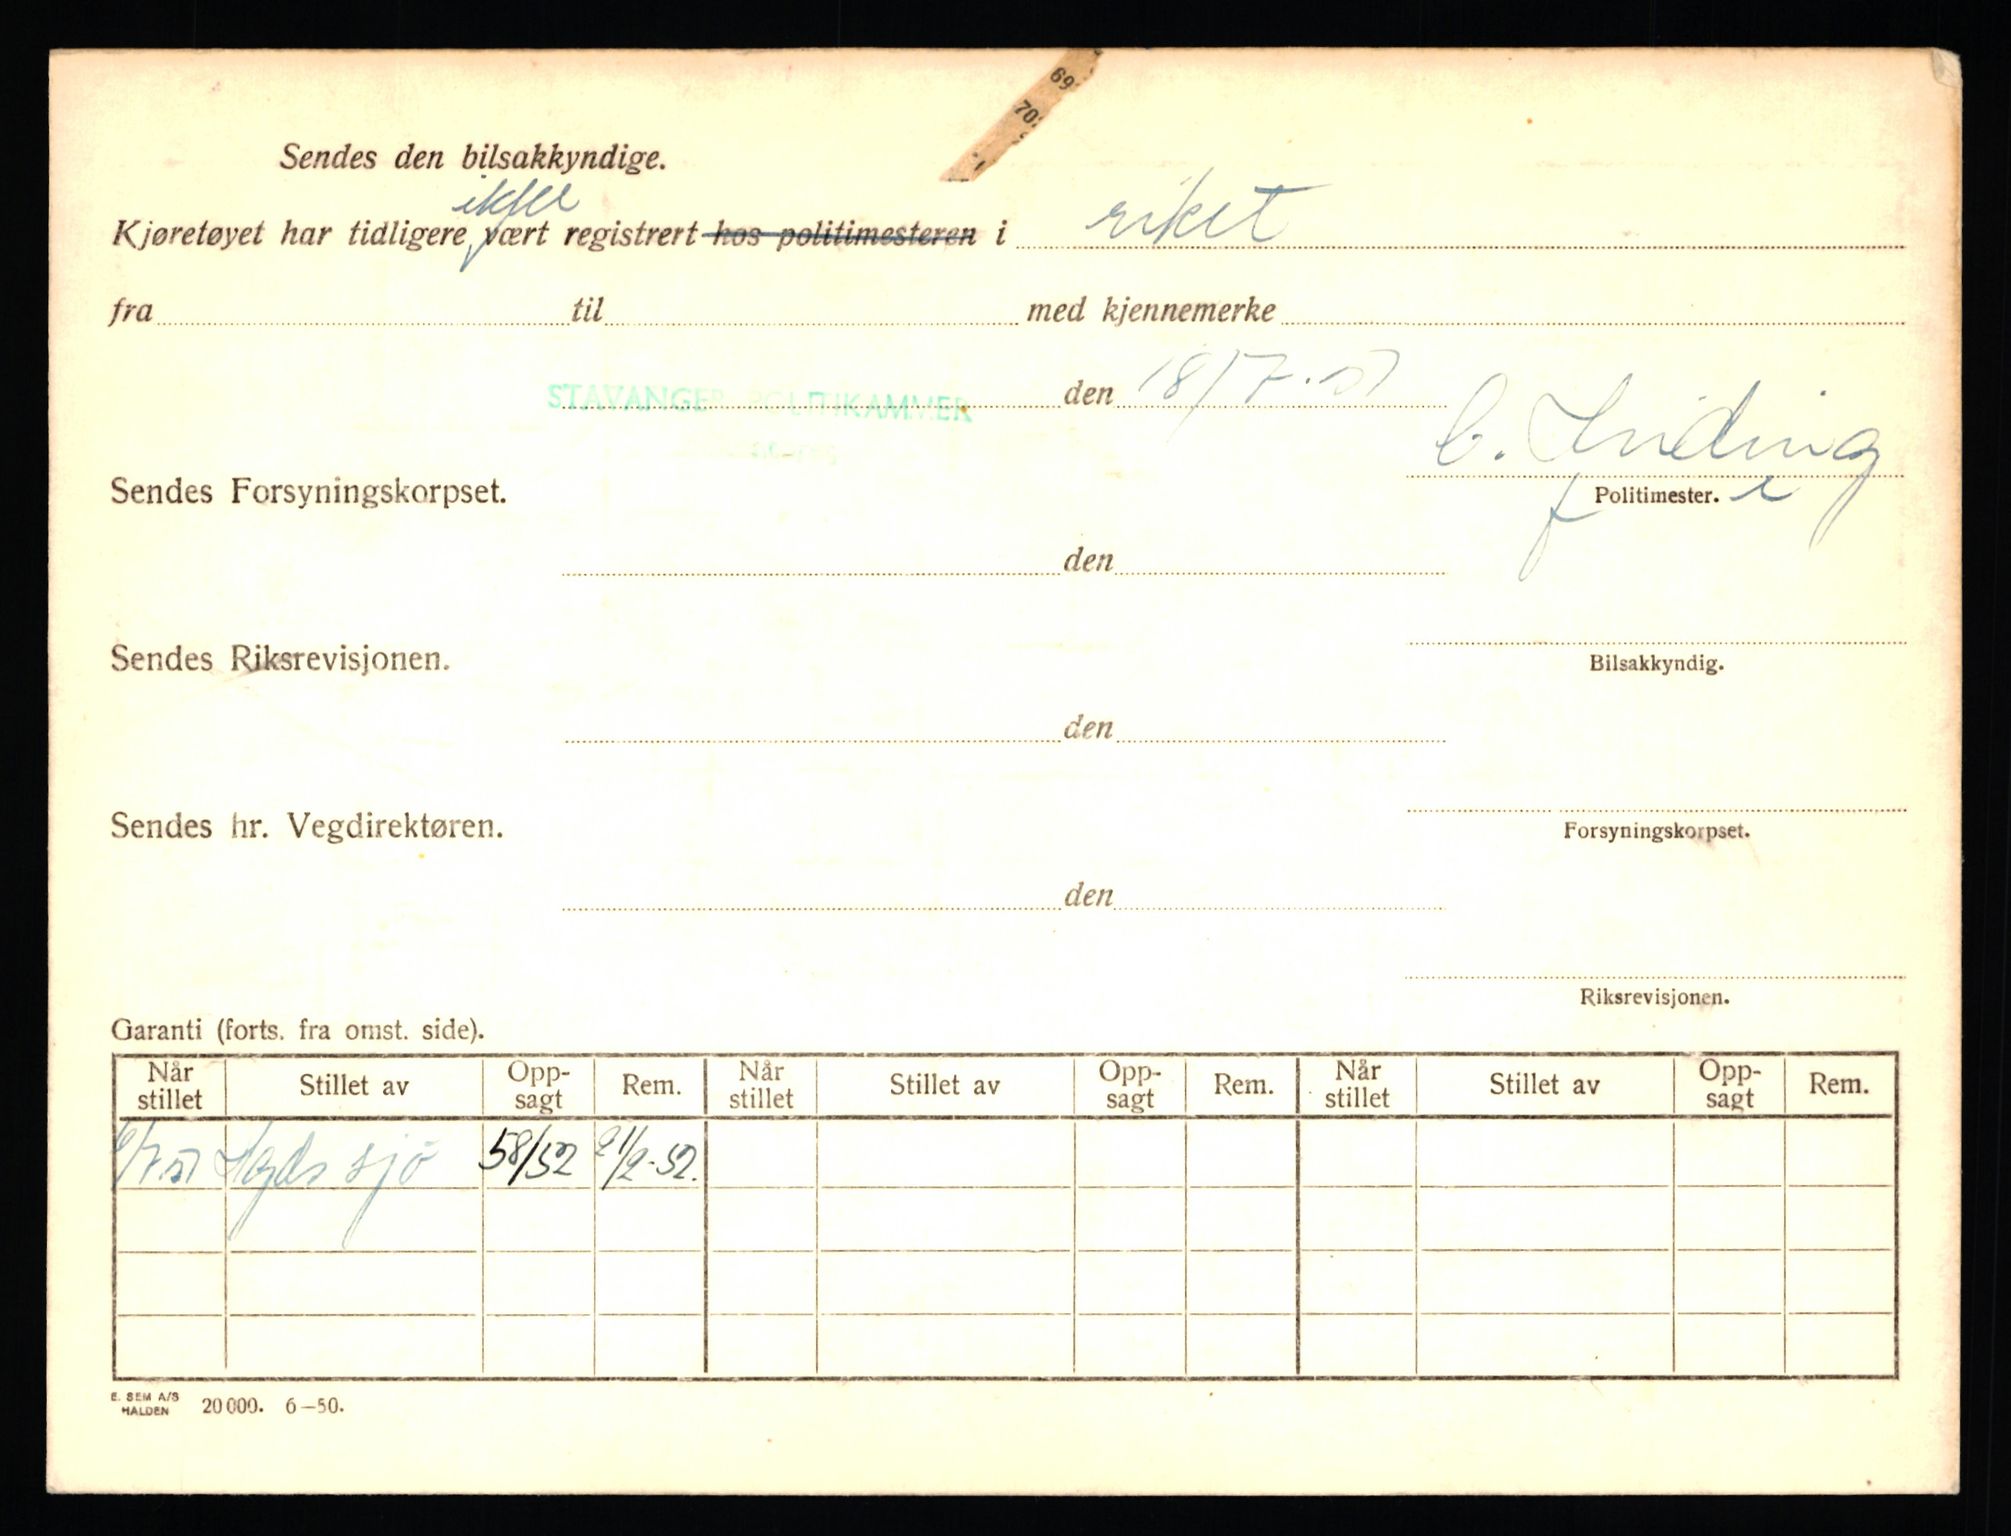 69
70
Sendes den bilsakkyndige.
ikke
Kjøretøyet har tidligere vært registrert hos politimesteren i riket
fra til med kjennemerke
STAVANGER POLITIKAMMER den 18/7.51
Sendes Forsyningskorpset.
Politimester.
den
Sendes Riksrevisjonen.
Bilsakkyndig.
den
Sendes hr. Vegdirektøren.
Forsyningskorpset.
den
Riksrevisjonen.
Garanti (forts. fra omst. side).
Når stillet Stillet av Opp-sagt Rem. Når stillet Stillet av Opp-sagt Rem. Når stillet Stillet av Opp-sagt Rem.
sjö 58/52 21/2-52.
E. SEM A/S
HALDEN 20000. 6-50.